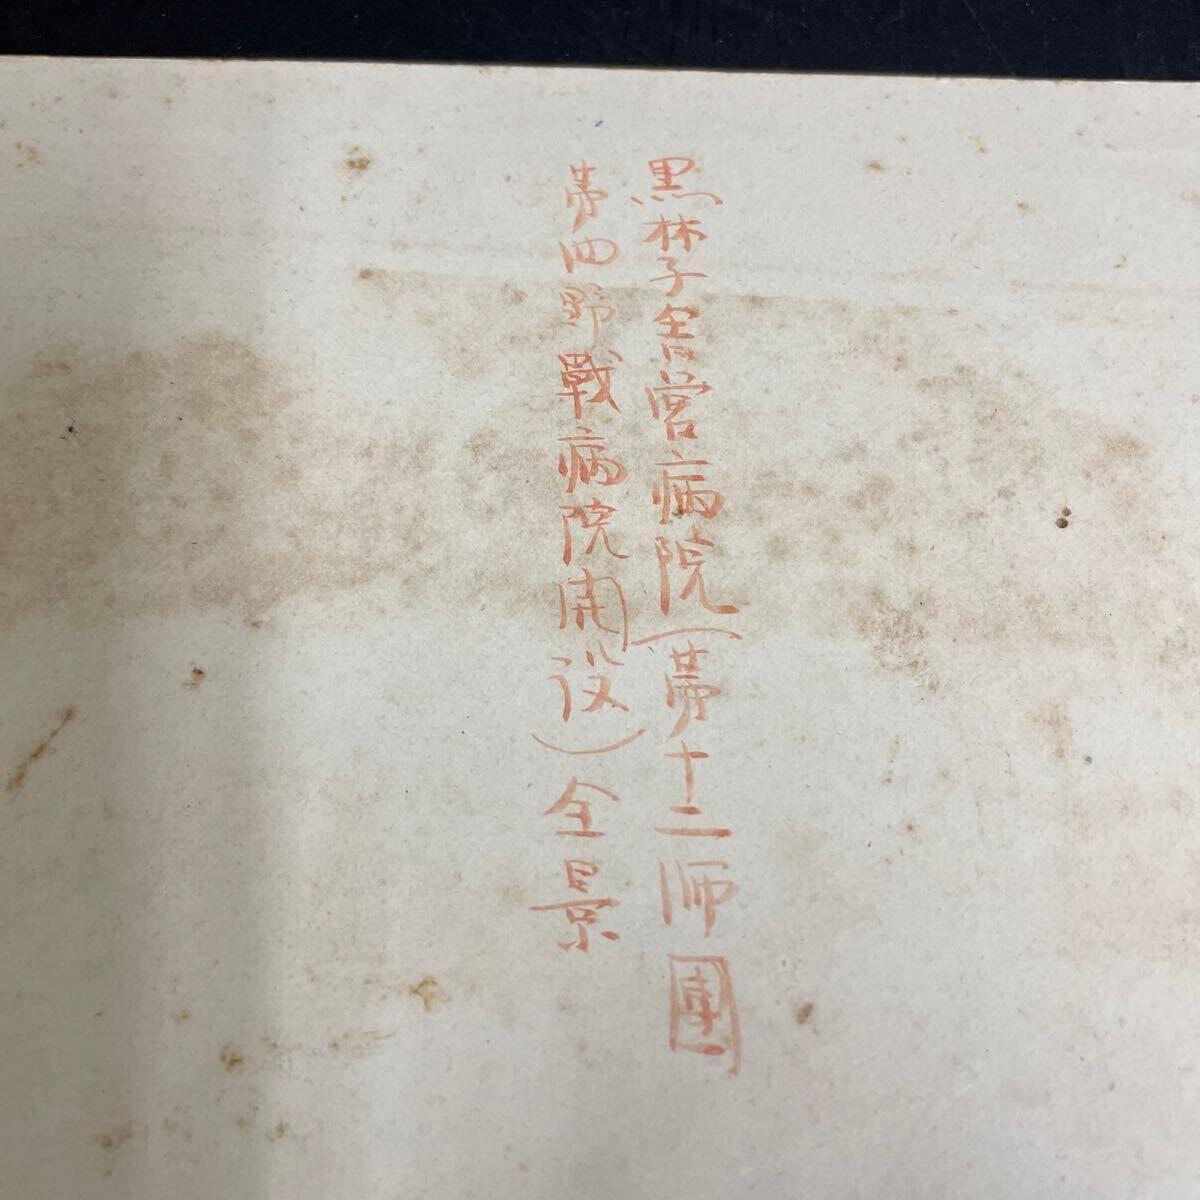 黒林子舎営病院(第十二師團
第四野戰病院開設)全景